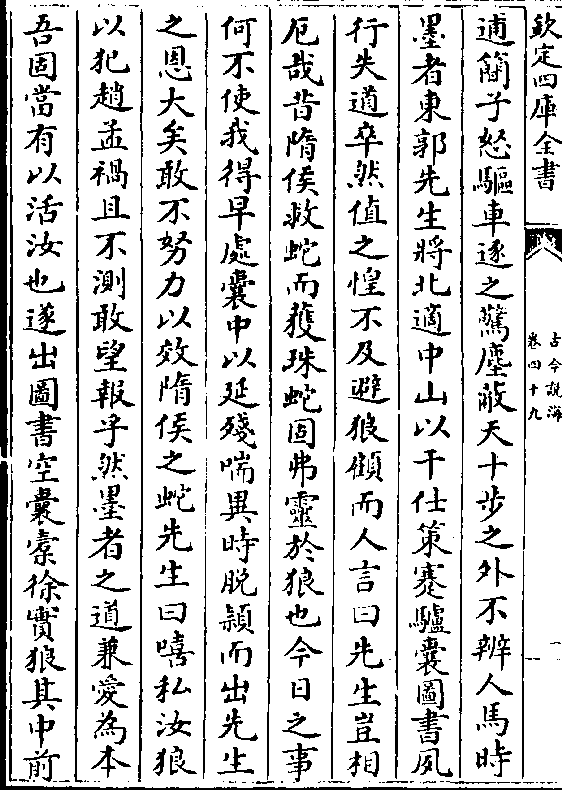 欽定四庫全書
古今說海
卷四十九
一
逋簡子怒驅車逐之驚塵蔽天十步之外不辨人馬時
墨者東郭先生將北適中山以干仕策蹇驢囊圖書夙
行失道卒然值之惶不及避狼顧而人言曰先生豈相
厄哉昔隋侯救蛇而獲珠蛇固弗靈於狼也今日之事
何不使我得早處囊中以延殘喘異時脫穎而出先生
之恩大矣敢不努力以效隋侯之蛇先生曰嘻私汝狼
以犯趙孟禍且不測敢望報乎然墨者之道兼愛為本
吾固當有以活汝也遂出圖書空囊橐徐實狼其中前